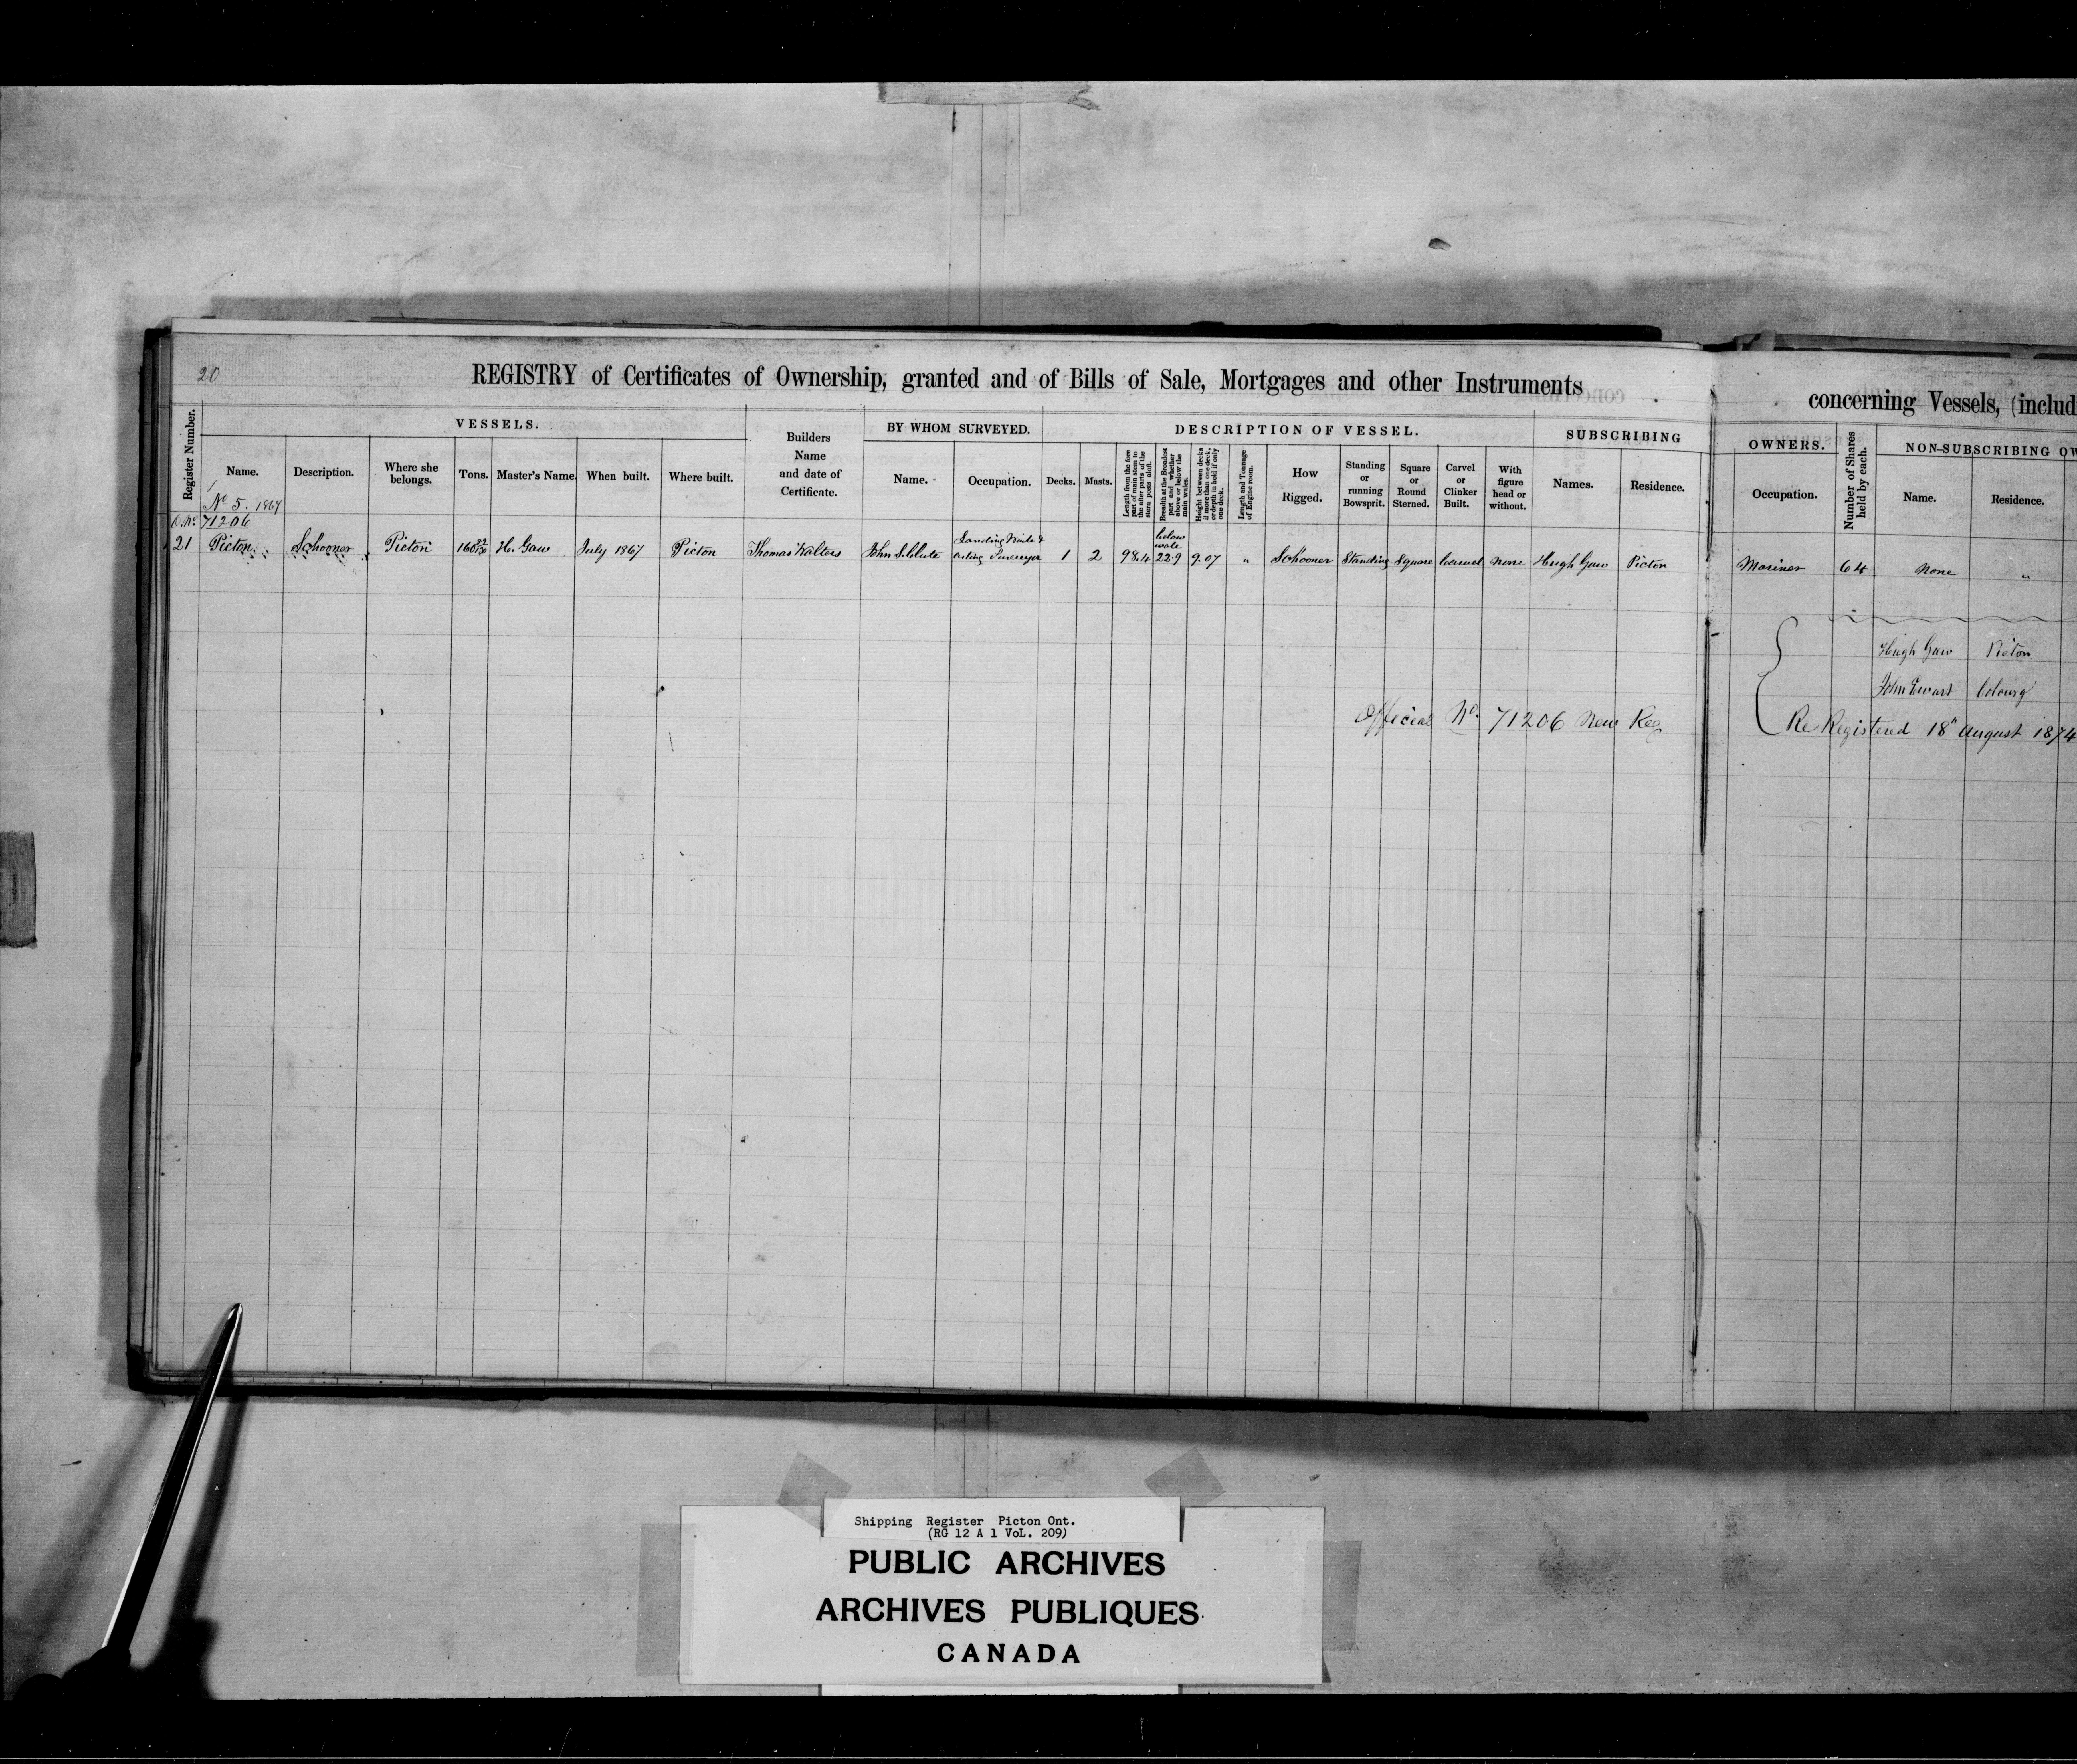 20
REGISTRY of Certificates of Ownership, granted and of Bills of Sale, Mortgages and other Instruments
concerning Vessels, (includ
Register Number.
VESSELS.
Name.
Description.
Where she belongs.
Tons.
Master's Name.
When built.
Where built.
Builders Name and date of Certificate.
BY WHOM SURVEYED.
Name.
Occupation.
DESCRIPTION OF VESSEL.
Decks.
Masts.
Length from the fore part of main stem to the after parts of the stern posts aloft.
Breadth at the Broadest part and whether above or below the main wales.
Height between decks if more than one deck, or depth in hold if only one deck.
Length and Tonnage of Engine room.
How Rigged.
Standing or running Bowsprit.
Square or Round Sterned.
Carvel or Clinker Built.
With figure head or without.
SUBSCRIBING
Names.
Residence.
OWNERS.
Occupation.
Number of Shares held by each.
NON-SUBSCRIBING OW
Name.
Residence.
No 5. 1867
O. No. 71206
21 Picton Schooner Picton 160 H. Gaw July 1867 Picton Thomas Walters John Landing Waiter & acting Surveyor 1 2 98.4 below wale 22.9 9.07 " Schooner Standing Square Carvel None Hugh Gaw Picton Mariner 64 None "
Hugh Gaw Picton
John Ewart Cobourg
Official No. 71206 New Reg
Re Registered 18th August 1874
Shipping Register Picton Ont.
(RG 12 A 1 VoL. 209)
PUBLIC ARCHIVES
ARCHIVES PUBLIQUES
CANADA